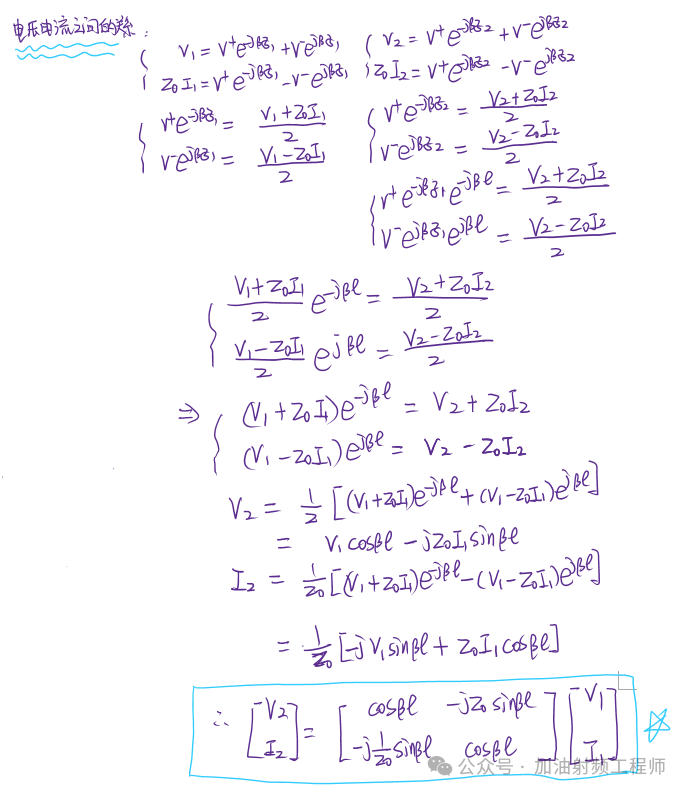 电压电流之间的关系：
V₁ = V⁺e^{-jβz₁} + V⁻e^{jβz₁}
Z₀I₁ = V⁺e^{-jβz₁} - V⁻e^{jβz₁}
V⁺e^{-jβz₁} = (V₁ + Z₀I₁)/2
V⁻e^{jβz₁} = (V₁ - Z₀I₁)/2
V₂ = V⁺e^{-jβz₂} + V⁻e^{jβz₂}
Z₀I₂ = V⁺e^{-jβz₂} - V⁻e^{jβz₂}
V⁺e^{-jβz₂} = (V₂ + Z₀I₂)/2
V⁻e^{jβz₂} = (V₂ - Z₀I₂)/2
V⁺e^{-jβz₁}e^{-jβℓ} = (V₂ + Z₀I₂)/2
V⁻e^{jβz₁}e^{jβℓ} = (V₂ - Z₀I₂)/2
(V₁ + Z₀I₁)/2 e^{-jβℓ} = (V₂ + Z₀I₂)/2
(V₁ - Z₀I₁)/2 e^{jβℓ} = (V₂ - Z₀I₂)/2
⇒ (V₁ + Z₀I₁)e^{-jβℓ} = V₂ + Z₀I₂
(V₁ - Z₀I₁)e^{jβℓ} = V₂ - Z₀I₂
V₂ = 1/2 [(V₁ + Z₀I₁)e^{-jβℓ} + (V₁ - Z₀I₁)e^{jβℓ}]
= V₁cosβℓ - jZ₀I₁sinβℓ
I₂ = 1/Z₀ [(V₁ + Z₀I₁)e^{-jβℓ} - (V₁ - Z₀I₁)e^{jβℓ}]
= 1/Z₀ [-jV₁sinβℓ + Z₀I₁cosβℓ]
∴ [V₂; I₂] = [cosβℓ, -jZ₀sinβℓ; -j1/Z₀ sinβℓ, cosβℓ] [V₁; I₁]
公众号 · 加油射频工程师